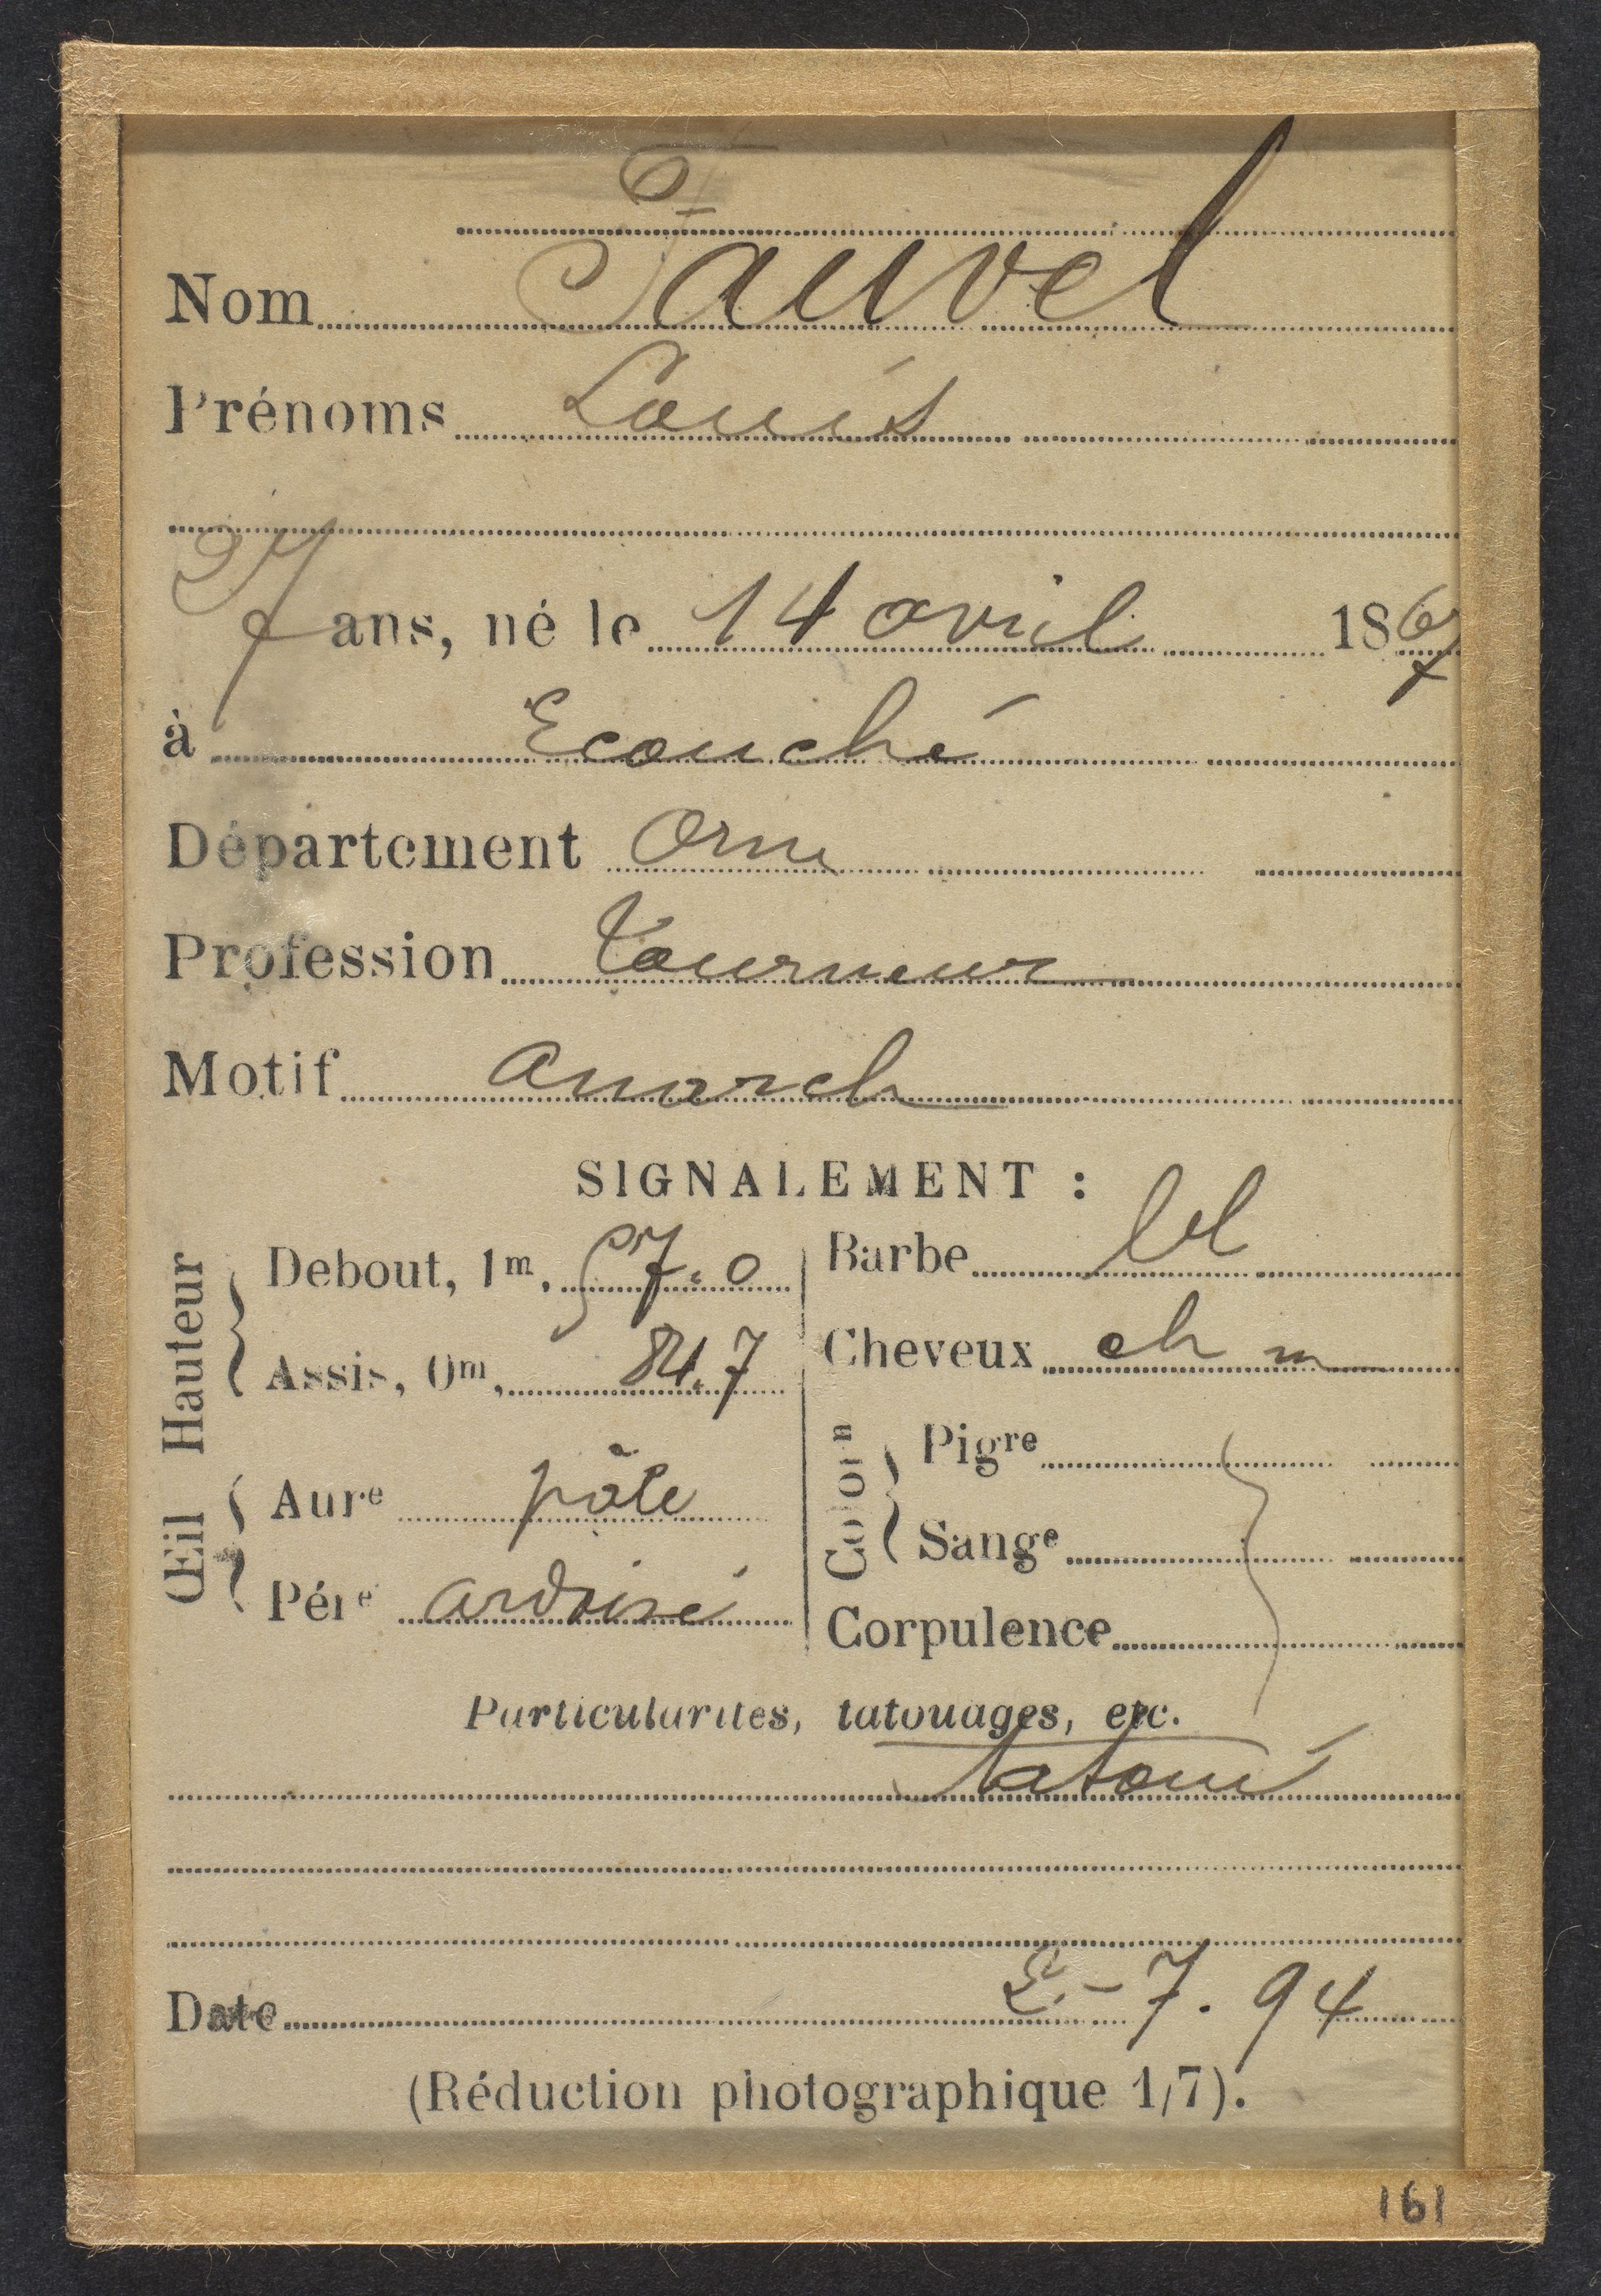 Nom Fauvel
Prénoms Louis
27 ans, né le 14 avril 1867
à Ecouché
Département Orne
Profession Tourneur
Motif anarch
SIGNALEMENT :
Hauteur
Debout, 1m, 57.0
Assis, 0m, 84.7
Œil
Aure pâle
Pére ardoisé
Barbe bl
Cheveux ch m
Colorn
Pigre
Sange
Corpulence
Particularités, tatouages, etc.
tatoué
Date 2.-7.94
(Réduction photographique 1/7).
161